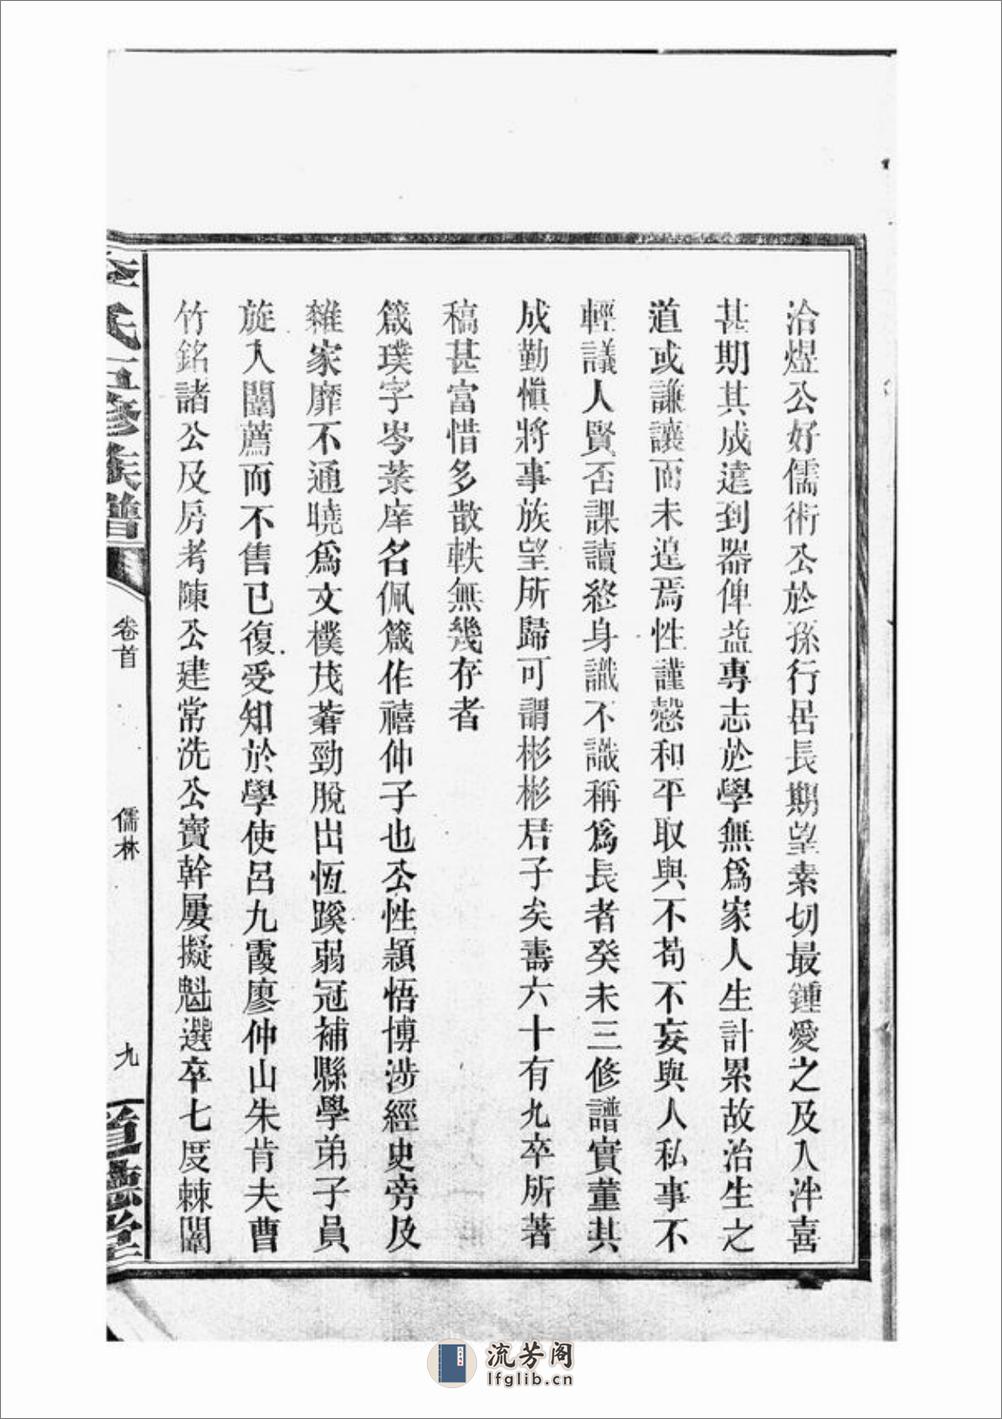 洽煜公好儒術公於孫行居長期望素切最鍾愛之及入泮喜
甚期其成達到器俾益專志於學無爲家人生計累故治生之
道或謙讓而未遑焉性謹愨和平取與不苟不妄與人私事不
輕議人賢否課讀終身識不識稱爲長者癸未三修譜實董其
成勤愼將事族望所歸可謂彬彬君子矣壽六十有九卒所著
稿甚富惜多散軼無幾存者
箴璞字岑菜庠名佩箴作禧仲子也公性穎悟博涉經史旁及
雜家靡不通曉爲文樸茂蒼勁脫出恆蹊弱冠補縣學弟子員
旋入闈薦而不售已復受知於學使呂九霞廖仲山朱肯夫曹
竹銘諸公及房考陳公建常洗公寶幹屢擬魁選卒七度棘闈
氏五修族譜
卷首
儒林
九
道德堂
流芳阁
lfglib.cn